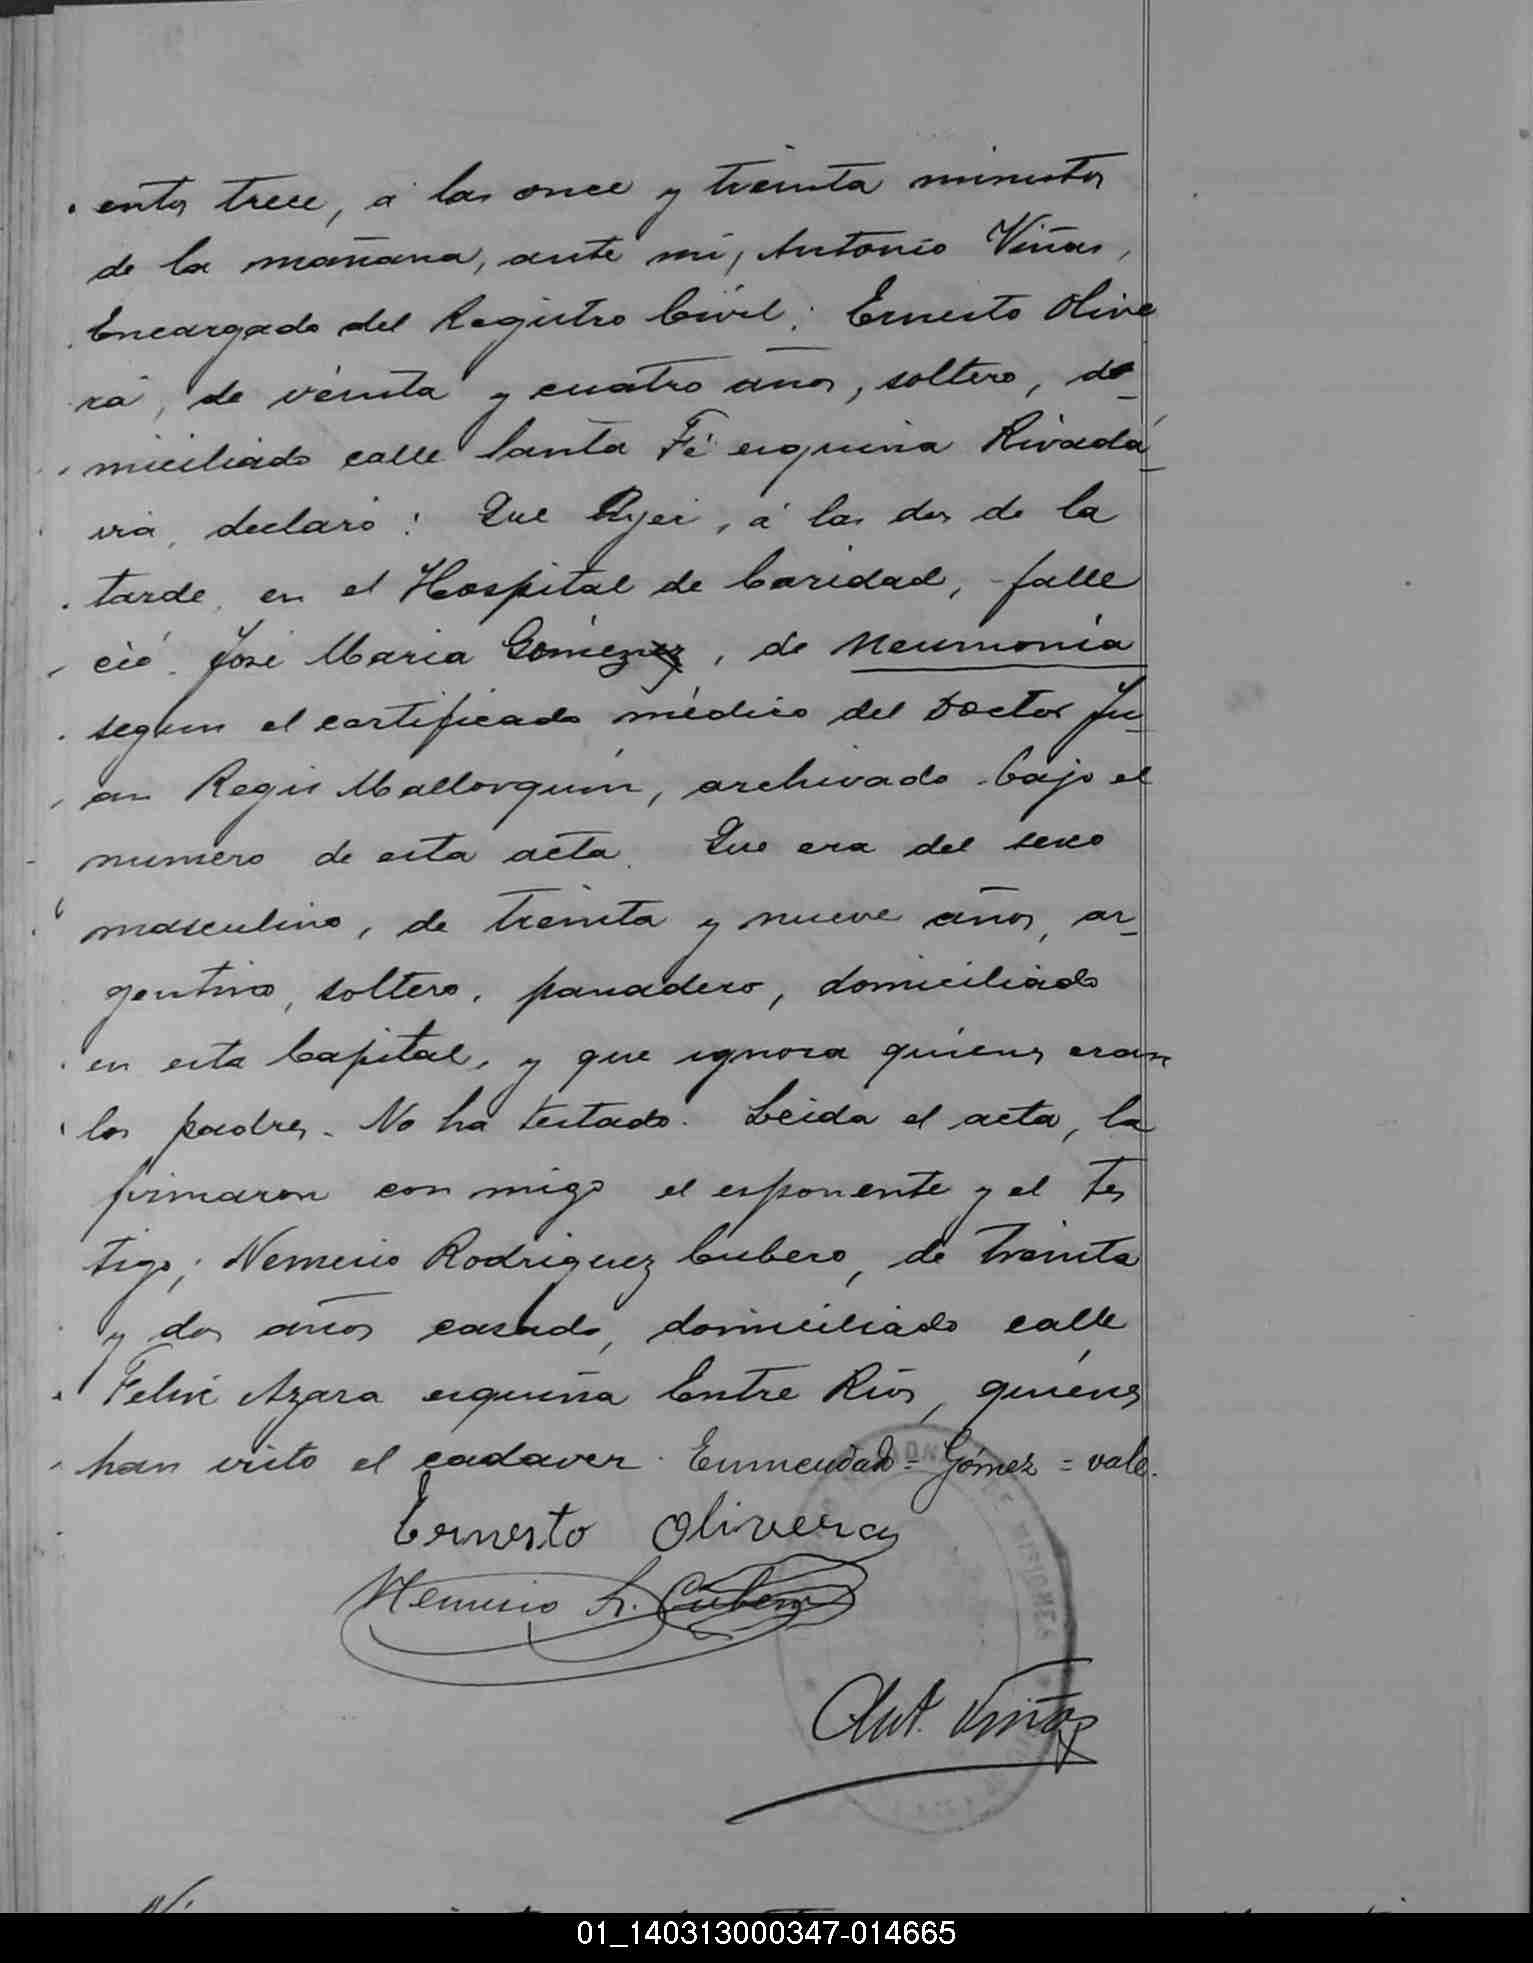 entos trece, á las once y treinta minutos
de la mañana, ante mí, Antonio Viñas,
Encargado del Registro Civil: Ernesto Olive
ra, de veinta y cuatro años, soltero, do-
miciliado calle Santa Fé esquina Rivada-
via, declaró: Que Ayer, á las dos de la
tarde, en el Hospital de Caridad, falle
ció José Maria Gómez, de Neumonía
segun el certificado médico del Doctor Ju-
an Regis Mallorquin, archivado bajo el
numero de esta acta. Que era del sexo
masculino, de treinta y nueve años, ar-
gentino, soltero, panadero, domiciliado
en esta Capital, y que ignora quienes eran
los padres. No ha testado. Leida el acta, la
firmaron con migo el esponente y el tes
tigo; Nemesio Rodriguez Cubero, de treinta
y dos años casado, domiciliado calle
Felix Azara esquina Entre Rios, quienes
han visto el cadaver. Enmendado = Gómez = vale.
Ernesto Olivera
Nemesio R. Cubero
Ant. Viñas
MISIONES
01_140313000347-014665